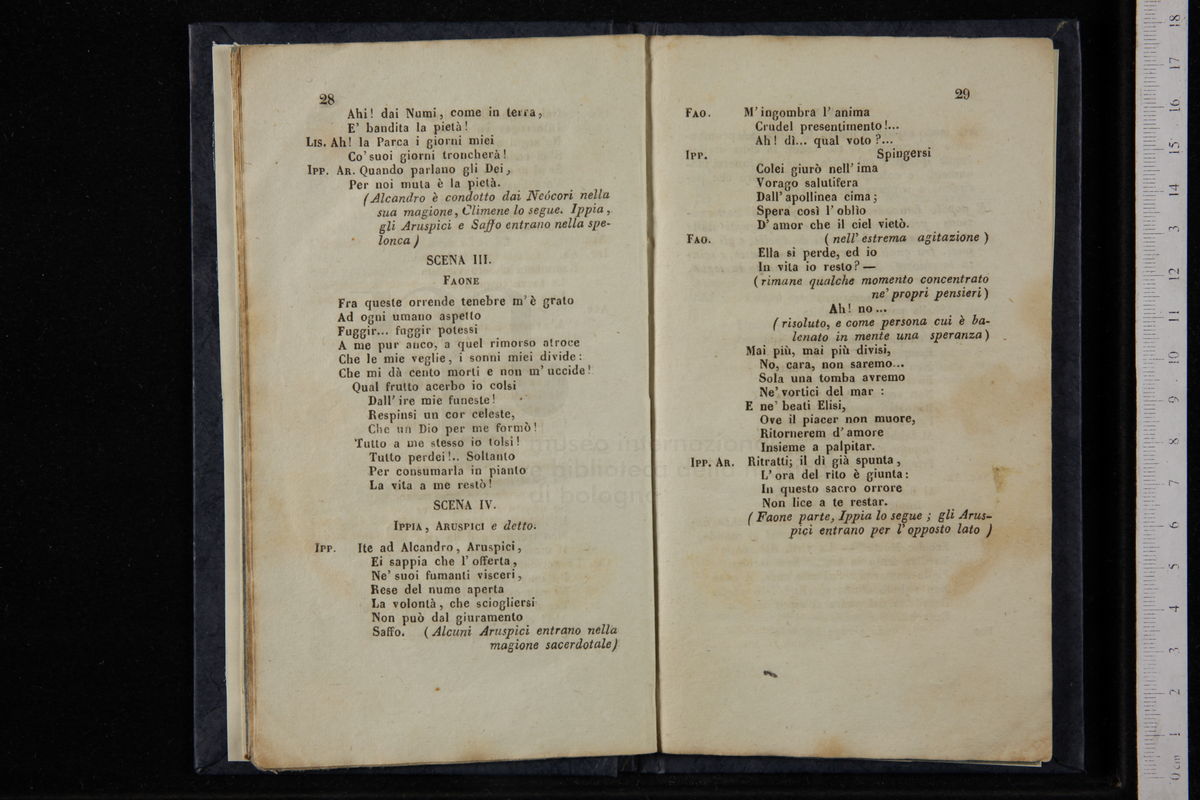 28
Ahi! dai Numi, come in terra,
E' bandita la pietà!
LIS. Ah! la Parca i giorni miei
Co' suoi giorni troncherà!
IPP. AR. Quando parlano gli Dei,
Per noi muta è la pietà.
(Alcandro è condotto dai Neócori nella
sua magione, Climene lo segue. Ippia,
gli Aruspici e Saffo entrano nella spe-
lonca)
SCENA III.
FAONE
Fra queste orrende tenebre m'è grato
Ad ogni umano aspetto
Fuggir... fuggir potessi
A me pur anco, a quel rimorso atroce
Che le mie veglie, i sonni miei divide:
Che mi dà cento morti e non m'uccide!
Qual frutto acerbo io colsi
Dall'ire mie funeste!
Respinsi un cor celeste,
Che un Dio per me formò!
Tutto a me stesso io tolsi!
Tutto perdei!.. Soltanto
Per consumarla in pianto
La vita a me restò!
SCENA IV.
IPPIA, ARUSPICI e detto.
IPP. Ite ad Alcandro, Aruspici,
Ei sappia che l'offerta,
Ne' suoi fumanti visceri,
Rese del nume aperta
La volontà, che sciogliersi
Non può dal giuramento
Saffo. (Alcuni Aruspici entrano nella
magione sacerdotale)
29
FAO. M'ingombra l'anima
Crudel presentimento!...
Ah! dì... qual voto?...
IPP. Spingersi
Colei giurò nell'ima
Vorago salutifera
Dall'apollinea cima;
Spera così l'oblìo
D'amor che il ciel vietò.
FAO. (nell'estrema agitazione)
Ella si perde, ed io
In vita io resto? —
(rimane qualche momento concentrato
ne' propri pensieri)
Ah! no...
(risoluto, e come persona cui è ba-
lenato in mente una speranza)
Mai più, mai più divisi,
No, cara, non saremo...
Sola una tomba avremo
Ne' vortici del mar :
E ne' beati Elisi,
Ove il piacer non muore,
Ritornerem d'amore
Insieme a palpitar.
IPP. AR. Ritratti; il dì già spunta,
L'ora del rito è giunta:
In questo sacro orrore
Non lice a te restar.
(Faone parte, Ippia lo segue; gli Arus-
pici entrano per l'opposto lato)
museo internazionale
e biblioteca della
di bologna
0 cm 1 2 3 4 5 6 7 8 9 10 11 12 13 14 15 16 17 18